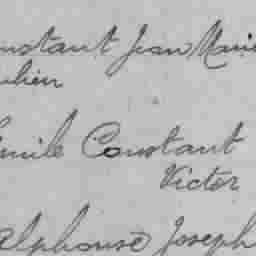 onstant Jean Marie
ulien
Emile Constant
Victor
Alphonse Joseph